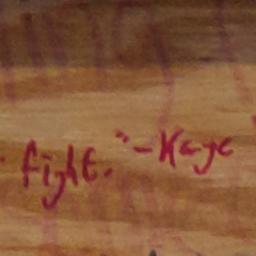 fight." - Kaye